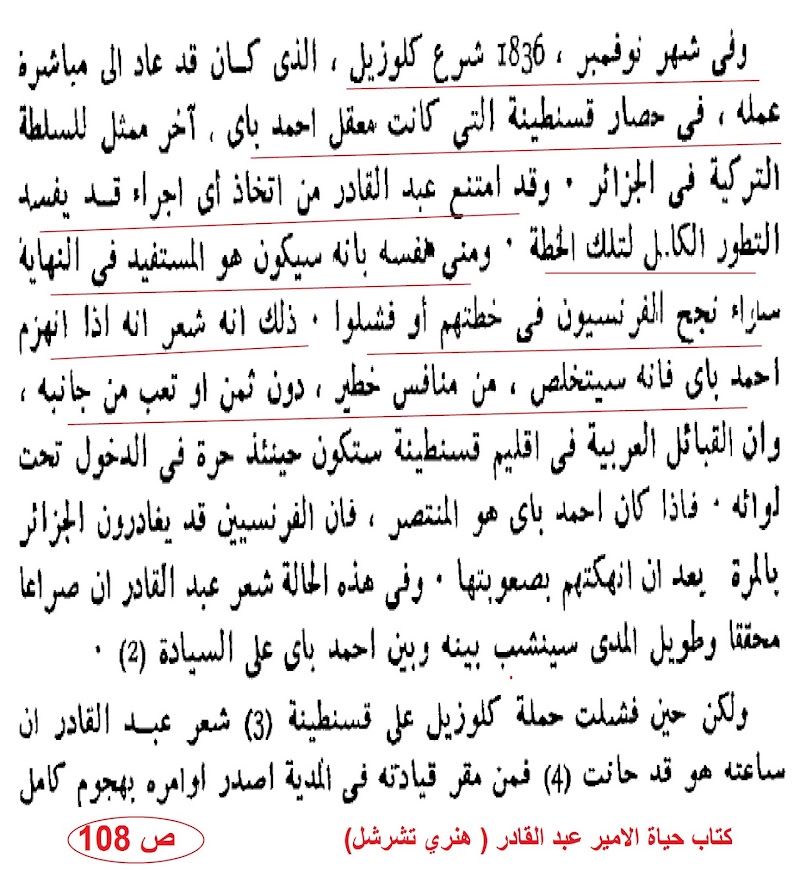 وفى شهر نوفمبر ، 1836 شرع كلوزيل ، الذى كان قد عاد الى مباشرة
عمله ، فى حصار قسنطينة التي كانت معقل احمد باى ، آخر ممثل للسلطة
التركية فى الجزائر · وقد امتنع عبد القادر من اتخاذ أى اجراء قد يفسد
التطور الكامل لتلك الخطة · ومنى نفسه بانه سيكون هو المستفيد فى النهاية
سواء نجح الفرنسيون فى خطتهم أو فشلوا · ذلك انه شعر انه اذا انهزم
احمد باى فانه سيتخلص ، من منافس خطير ، دون ثمن او تعب من جانبه ،
وان القبائل العربية فى اقليم قسنطينة ستكون حينئذ حرة فى الدخول تحت
لوائه · فاذا كان احمد باى هو المنتصر ، فان الفرنسيين قد يغادرون الجزائر
بالمرة يعد ان انهكتهم بصعوبتها · وفى هذه الحالة شعر عبد القادر ان صراعا
محققا وطويل المدى سينشب بينه وبين احمد باى على السيادة (2) ·
ولكن حين فشلت حملة كلوزيل على قسنطينة (3) شعر عبد القادر ان
ساعته هو قد حانت (4) فمن مقر قيادته فى المدية اصدر اوامره بهجوم كامل
كتاب حياة الامير عبد القادر ( هنري تشرشل) ص 108